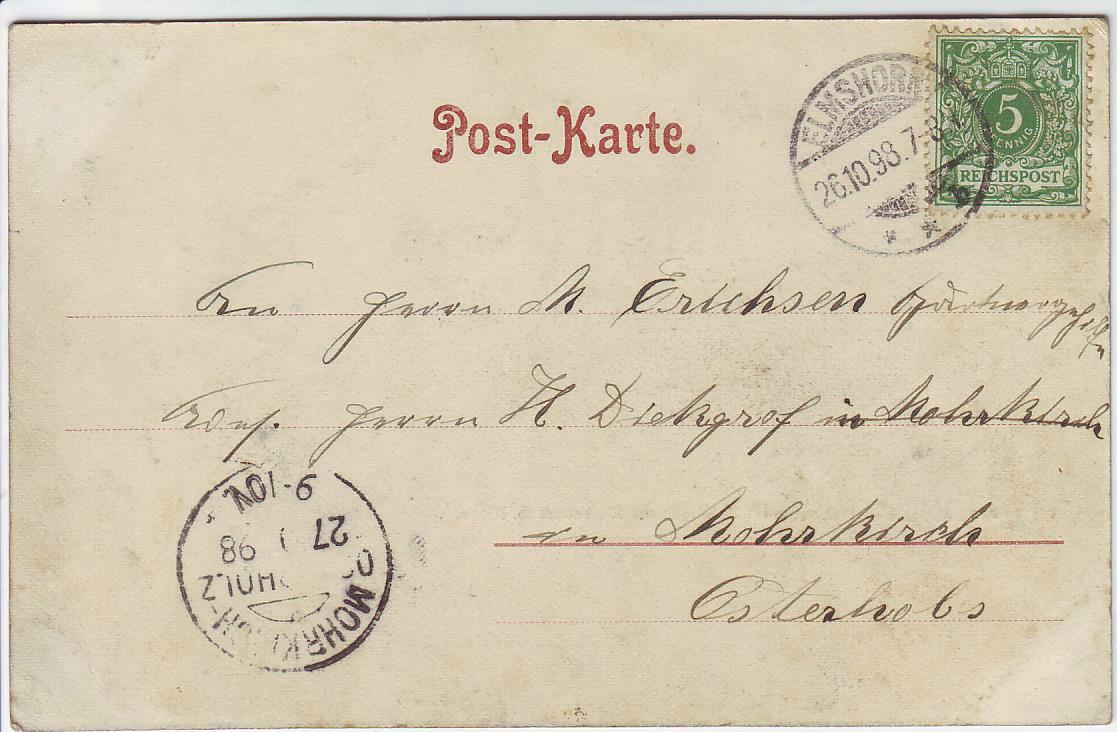 Post-Karte.
ELMSHORN
26.10.98.7-8
5
PFENNIG
REICHSPOST
An Herrn M. Erichsen Gärtnergehilfn
Adr. Herrn H. Diekgrof in Mohrkirch
in Mohrkirch
Osterhols
MOHRKIRCH-
HOLZ
27 98
9-10V.